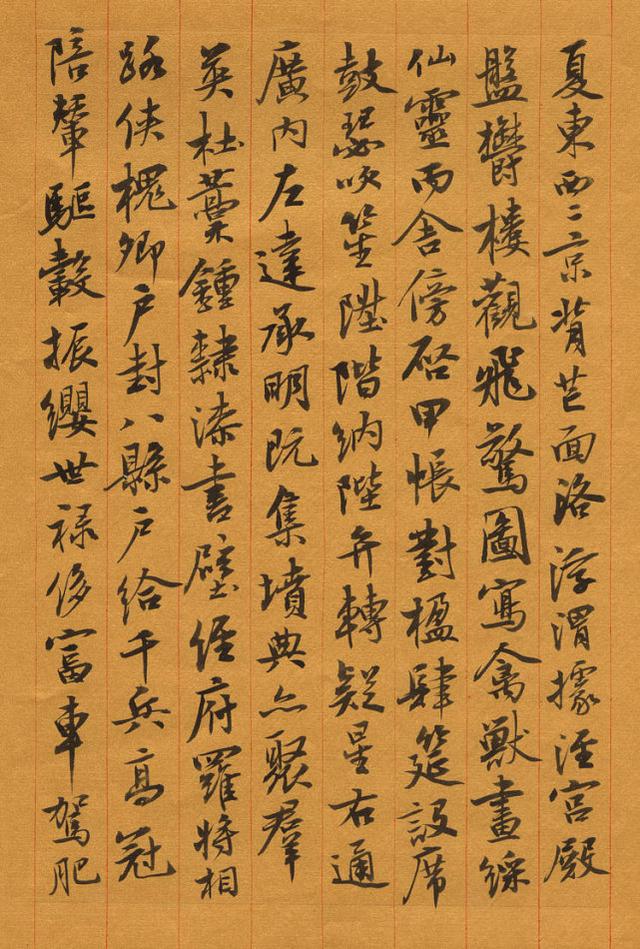 夏東西二京背芒面洛浮渭據涇宮殿
盤欝樓觀飛驚圖寫禽獸畫綵
仙靈丙舍傍啓甲帳對楹肆筵設席
鼓瑟吹笙陞階納陛弁轉疑星右通
廣內左達承明既集墳典亦聚群
英杜藁鍾隸漆書壁経府羅將相
路俠槐卿戶封八縣戶給千兵高冠
陪輦驅轂振纓世禄侈富車駕肥